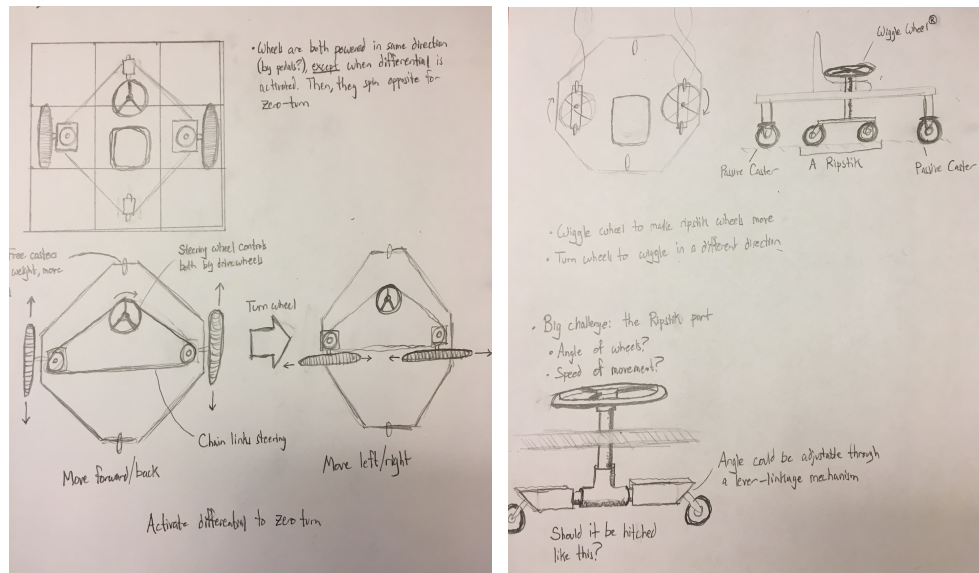 • Wheels are both powered in same direction
(by pedals?), except when differential is
activated. Then, they spin opposite for
zero-turn
Free casters
weight, more
Steering wheel controls
both big drivewheels
Turn wheel
Chain links steering
Move forward/back
Move left/right
Activate differential to zero turn
Wiggle Wheel®
Passive Caster
A Ripstik
Passive Caster
• Wiggle wheel to make ripstik wheels move
• Turn wheels to wiggle in a different direction
• Big challenge: the Ripstik part
• Angle of wheels?
• Speed of movement?
Angle could be adjustable through
a lever-linkage mechanism
Should it be hitched
like this?